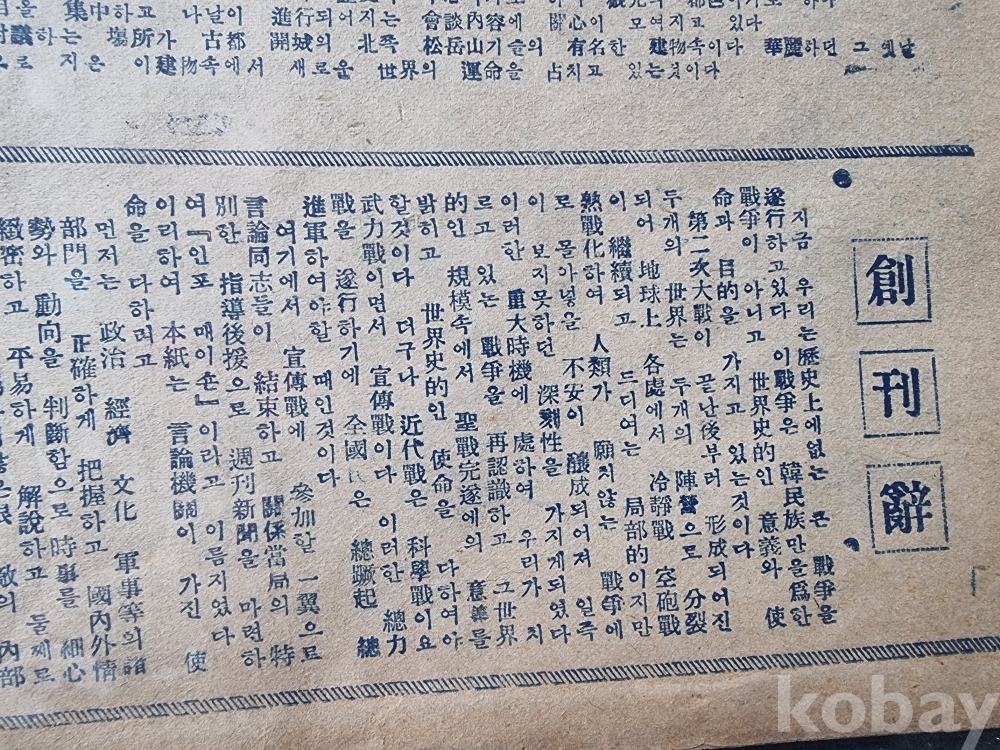 集中하고 나날이 進行되어지는 會談內容에 關心이 모여지고 있다
討議하는 場所가 古都 開城의 北쪽 松岳山기슬의 有名한 建物속이다 華麗하던 그 옛날
으로 지은 이建物속에서 새로운 世界의 運命을 占치고 있는것이다
創刊辭
지금 우리는 歷史上에없는 큰 戰爭을
遂行하고있다 이戰爭은 韓民族만을爲한
戰爭이 아니고 世界史的인 意義와 使
命과 目的을 가지고 있는것이다
第二次大戰이 끝난後부터 形成되어진
두개의 世界는 두개의 陣營으로 分裂
되어 地球上 各處에서 冷靜戰 空砲戰
이 繼續되고 드디여는 局部的이지만
熱戰化하여 人類가 願지않는 戰爭에
로 몰아넣을 不安이 釀成되어져 일즉
이 보지못하던 深刻性을 가지게되였다
이러한 重大時機에 處하여 우리가 치
르고 있는 戰爭을 再認識하고 그世界
的인 規模속에서 聖戰完遂에의 意義를
밝히고 世界史的인 使命을 다하여야
할것이다 더구나 近代戰은 科學戰이요
武力戰이면서 宣傳戰이다 이러한 總力
戰을 遂行하기에 全國民은 總蹶起 總
進軍하여야할 때인것이다
여기에서 宣傳戰에 參加할 一翼으로
言論同志들이 結束하고 關係當局의 特
別한 指導後援으로 週刊新聞을 마련하
여『인포 매이숀』이라고 이름지였다
이리하여 本紙는 言論機關이 가진 使
命을 다하려고
먼저는 政治 經濟 文化 軍事等의 諸
部門을 正確하게 把握하고 國內外情
勢와 動向을 判斷함으로 時事를 細心
緻密하고 平易하게 解說하고 둘째로
敵의 內部
kobay